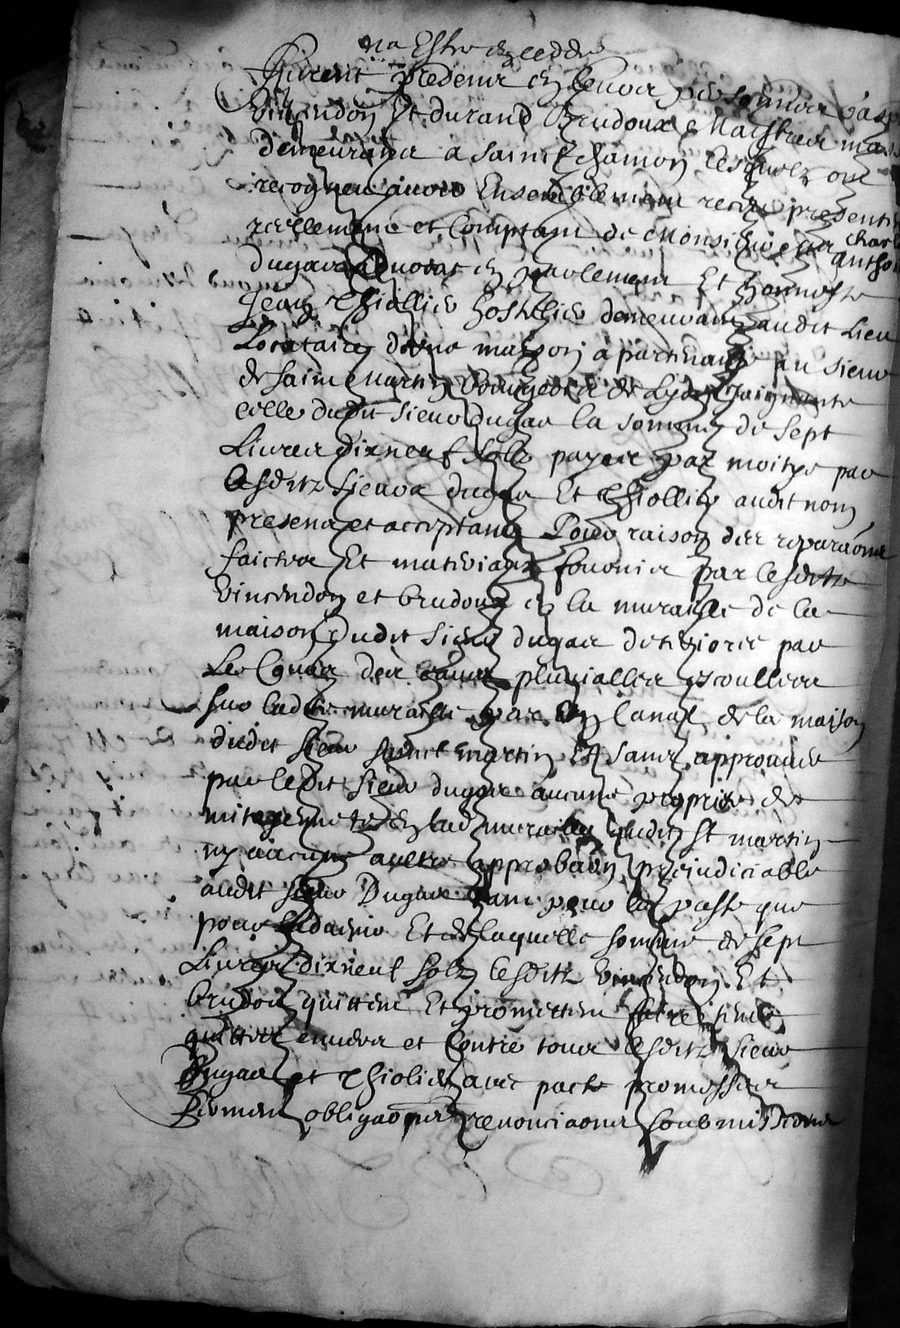 na Esté expedié
Furent presens en leurs personnes
Vincendon Et durand brudoux Maistres
demeurans a sainct chamon lesquelz ont
recogneu avoir Ensemblement receu presente
reellement et comptant de Monsieur charles anthoi
dugas advocat en parlement Et honneste
Jean Thiollier hostellier demeurant audit Lieu
Locataire d'une maison apartenant au sieur
de sainct Martin bourgeois de Lyon Joignante
celle dudit sieur dugas la somme de sept
Livres dixneuf solz payee par moitye par
lesditz sieurs dugas Et Thiollier audit nom
presens et acceptans Pour raison des reparaons
faictes Et materiaux fournis par lesditz
Vincendon et brudoux en la muraille de la
maison dudit sieur dugas deteriorée par
Le Cours des eaux pluvialles escoullees
sur ladite muraille par un Canal de la maison
dudit sieur sainct martin Et sans approuver
par ledit sieur dugas aucune proprieté de
mitoyenneté en lad muraille dudit St martin
ny aucune aultre approbaon prejudiciable
audit sieur Dugas tant pour le passé que
pour l'advenir Et de laquelle somme de sept
Livres dixneuf solz lesditz Vincendon Et
brudoux quittent Et promettent faire tenir
quittes envers et contre tous lesditz sieurs
Dugas et Thiolier avec pacte promesses
sermens obligaons renonciaons soubmissions